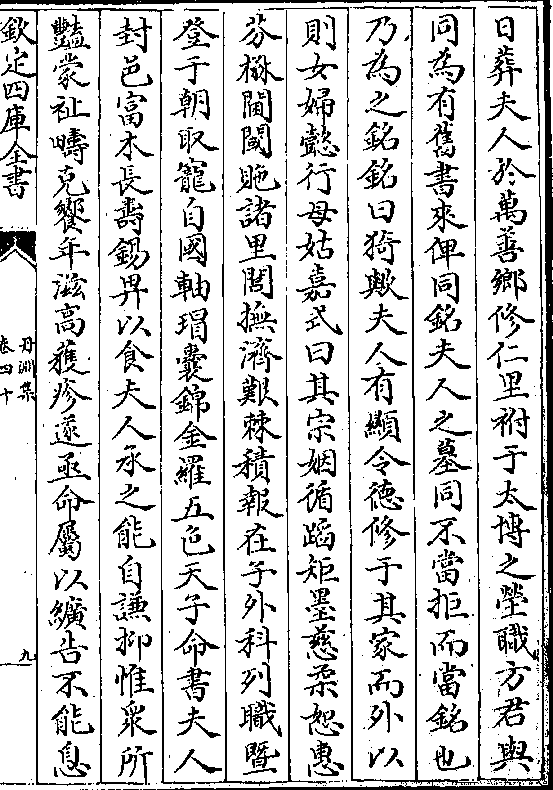 日葬夫人於萬善鄉修仁里祔于太博之塋職方君與
同為有舊書來俾同銘夫人之墓同不當拒而當銘也
乃為之銘銘曰猗歟夫人有顯令德修于其家而外以
則女婦懿行母姑嘉式曰其宗姻循蹈矩墨慈柔恕惠
芬楙閫閾貤諸里閭撫濟艱棘積報在子外科列職暨
登于朝取寵自國軸瑁囊錦金羅五色天子命書夫人
封邑富木長壽錫畀以食夫人承之能自謙抑惟衆所
豔蒙祉疇克饗年滋高獲疹遂亟命屬以纊告不能息
欽定四庫全書
丹淵集
卷四十
九